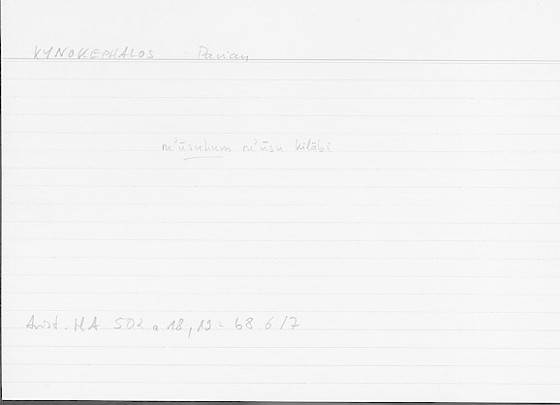 KYNOKEPHALOS Pavian
rū'ūsuhum rū'ūsu kilābi
Arist. HA 502 a 18, 19 = 68 6/7